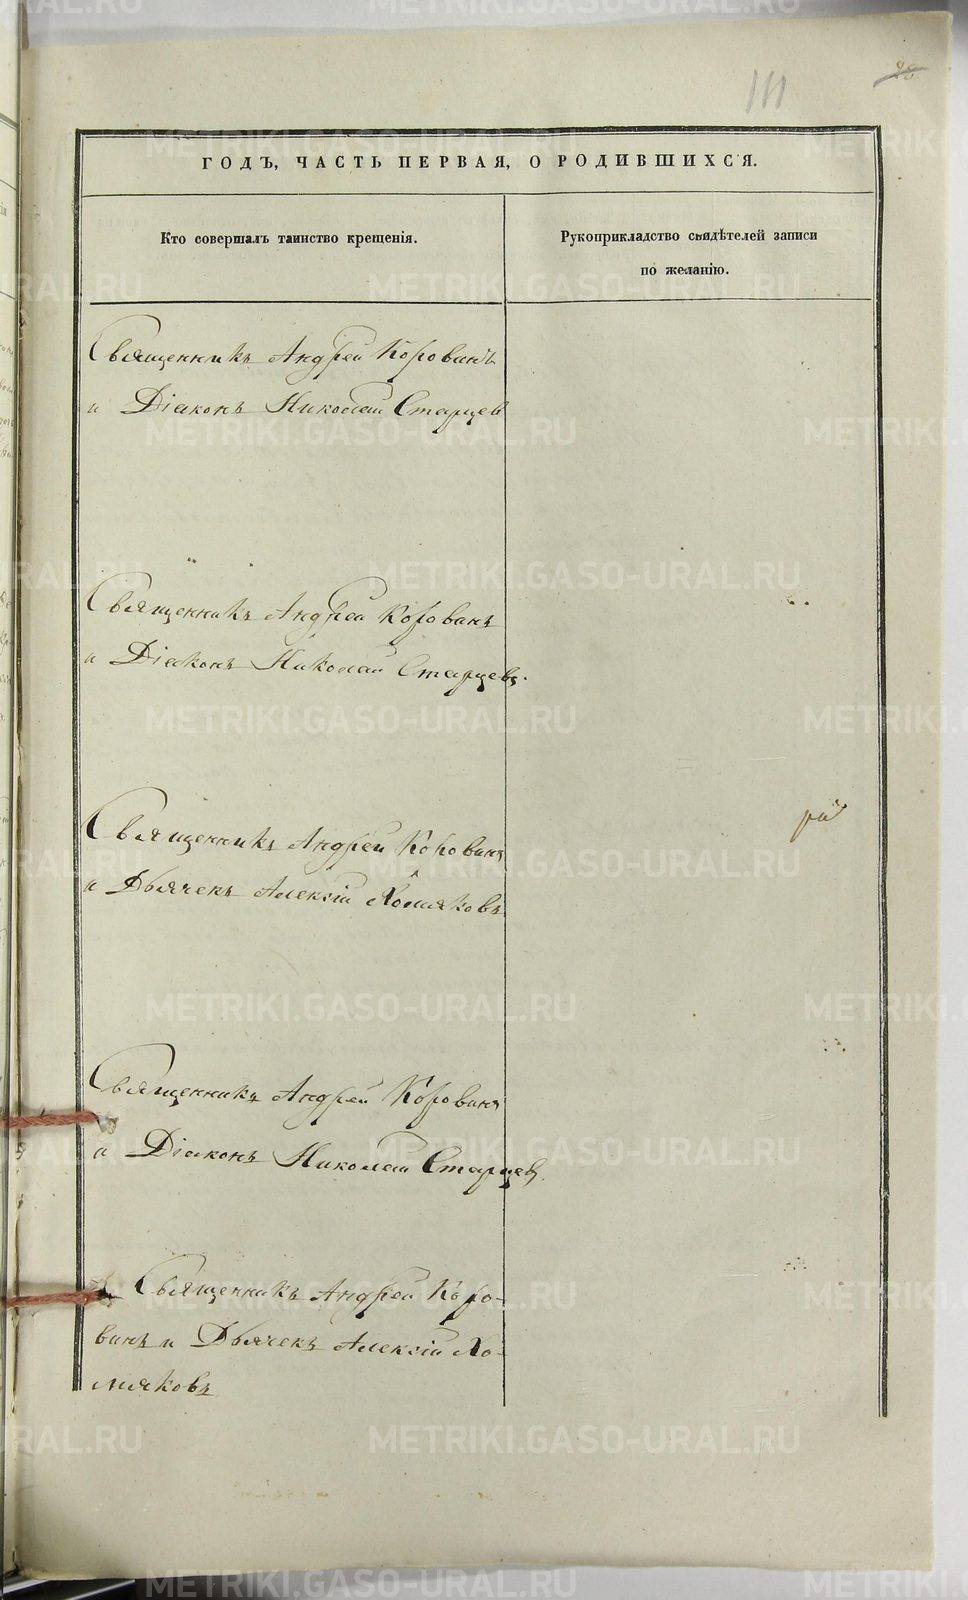 111
28
ГОДЪ, ЧАСТЬ ПЕРВАЯ, О РОДИВШИХСЯ.
Кто совершалъ таинство крещенія.
Рукоприкладство свидѣтелей записи
по желанію.
Священникъ Андрей Корованъ
и Діаконъ Николай Старцев
Священникъ Андрей Корованъ
и Діаконъ Николай Старцевъ.
Священникъ Андрей Корованъ
и Дьячекъ Алексій Хомяковъ
Священникъ Андрей Корованъ
и Діаконъ Николай Старцевъ.
Священникъ Андрей Коро-
ванъ и Дьячекъ Алексій Хо-
мяковъ
METRIKI.GASO-URAL.RU